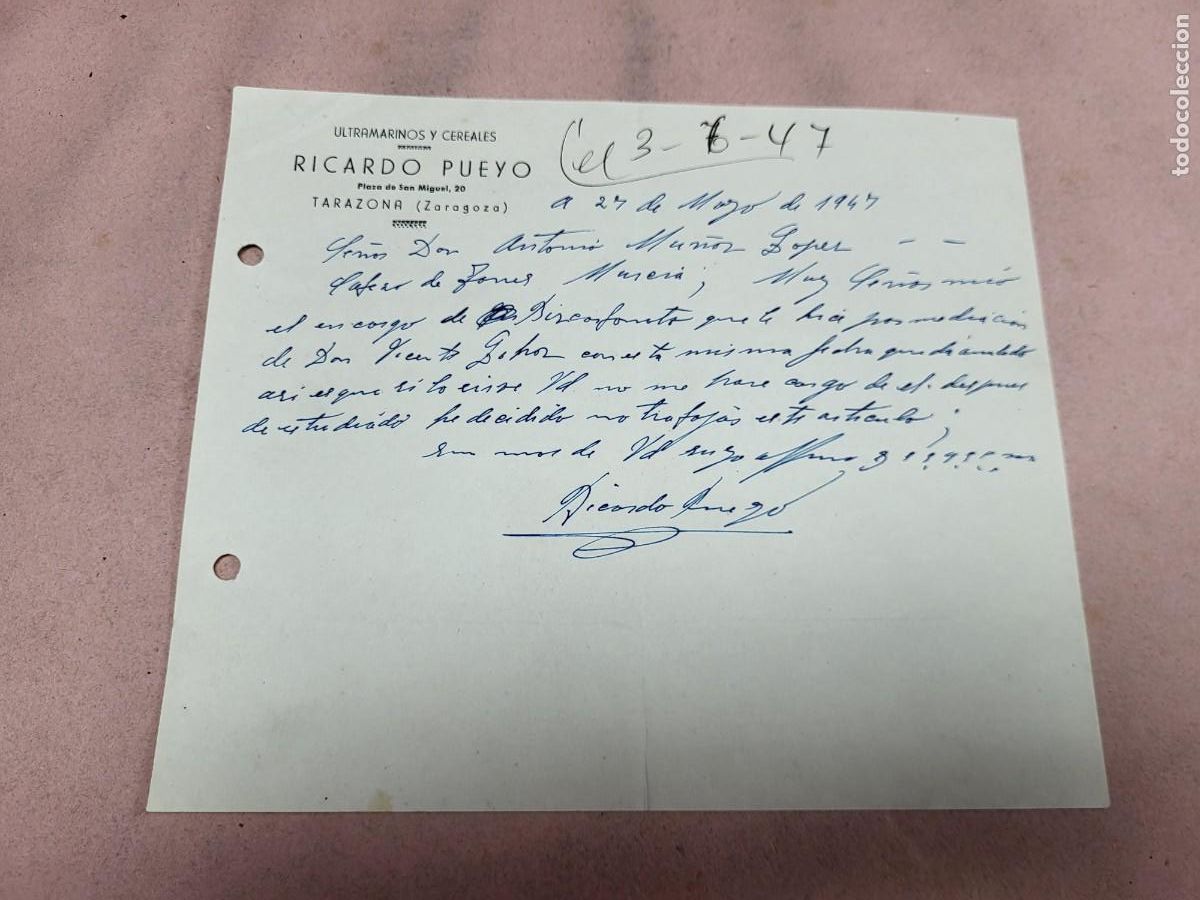 ULTRAMARINOS Y CEREALES
RICARDO PUEYO
Plaza de San Miguel, 20
TARAZONA (Zaragoza)
el 3-6-47
a 27 de Mayo de 1947
Señor Don Antonio Muñoz Lopez - -
de Torres Murcia; Muy Señor mio
el encargo de que le hice por mediacion
de Don Vicente con esta misma fecha queda anulado
asi es que si lo Vd no me hare cargo de el. despues
de estudiado he decidido no trabajar este articulo;
sin mas de Vd suyo affmo
Ricardo Pueyo
todocoleccion